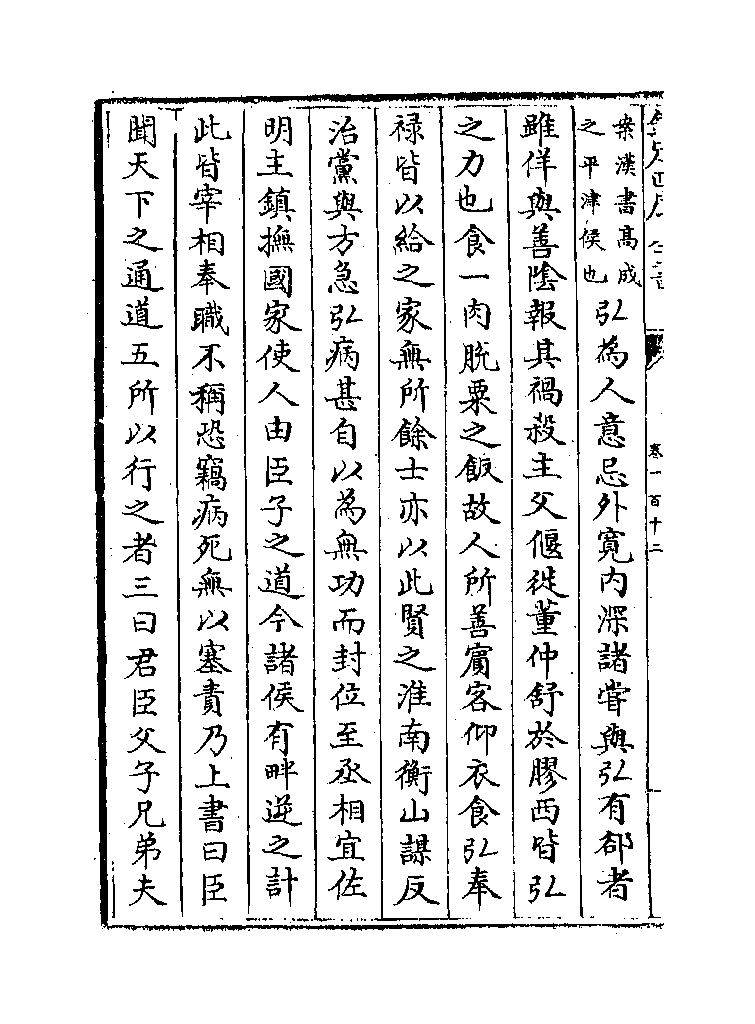 欽定四庫全書
卷一百十二
案漢書高成
之平津侯也
弘為人意忌外寛内深諸嘗與弘有郤者
雖佯與善陰報其禍殺主父偃徙董仲舒於膠西皆弘
之力也食一肉脱粟之飯故人所善賓客仰衣食弘奉
禄皆以給之家無所餘士亦以此賢之淮南衡山謀反
治黨與方急弘病甚自以為無功而封位至丞相宜佐
明主鎮撫國家使人由臣子之道今諸侯有畔逆之計
此皆宰相奉職不稱恐竊病死無以塞責乃上書曰臣
聞天下之通道五所以行之者三曰君臣父子兄弟夫